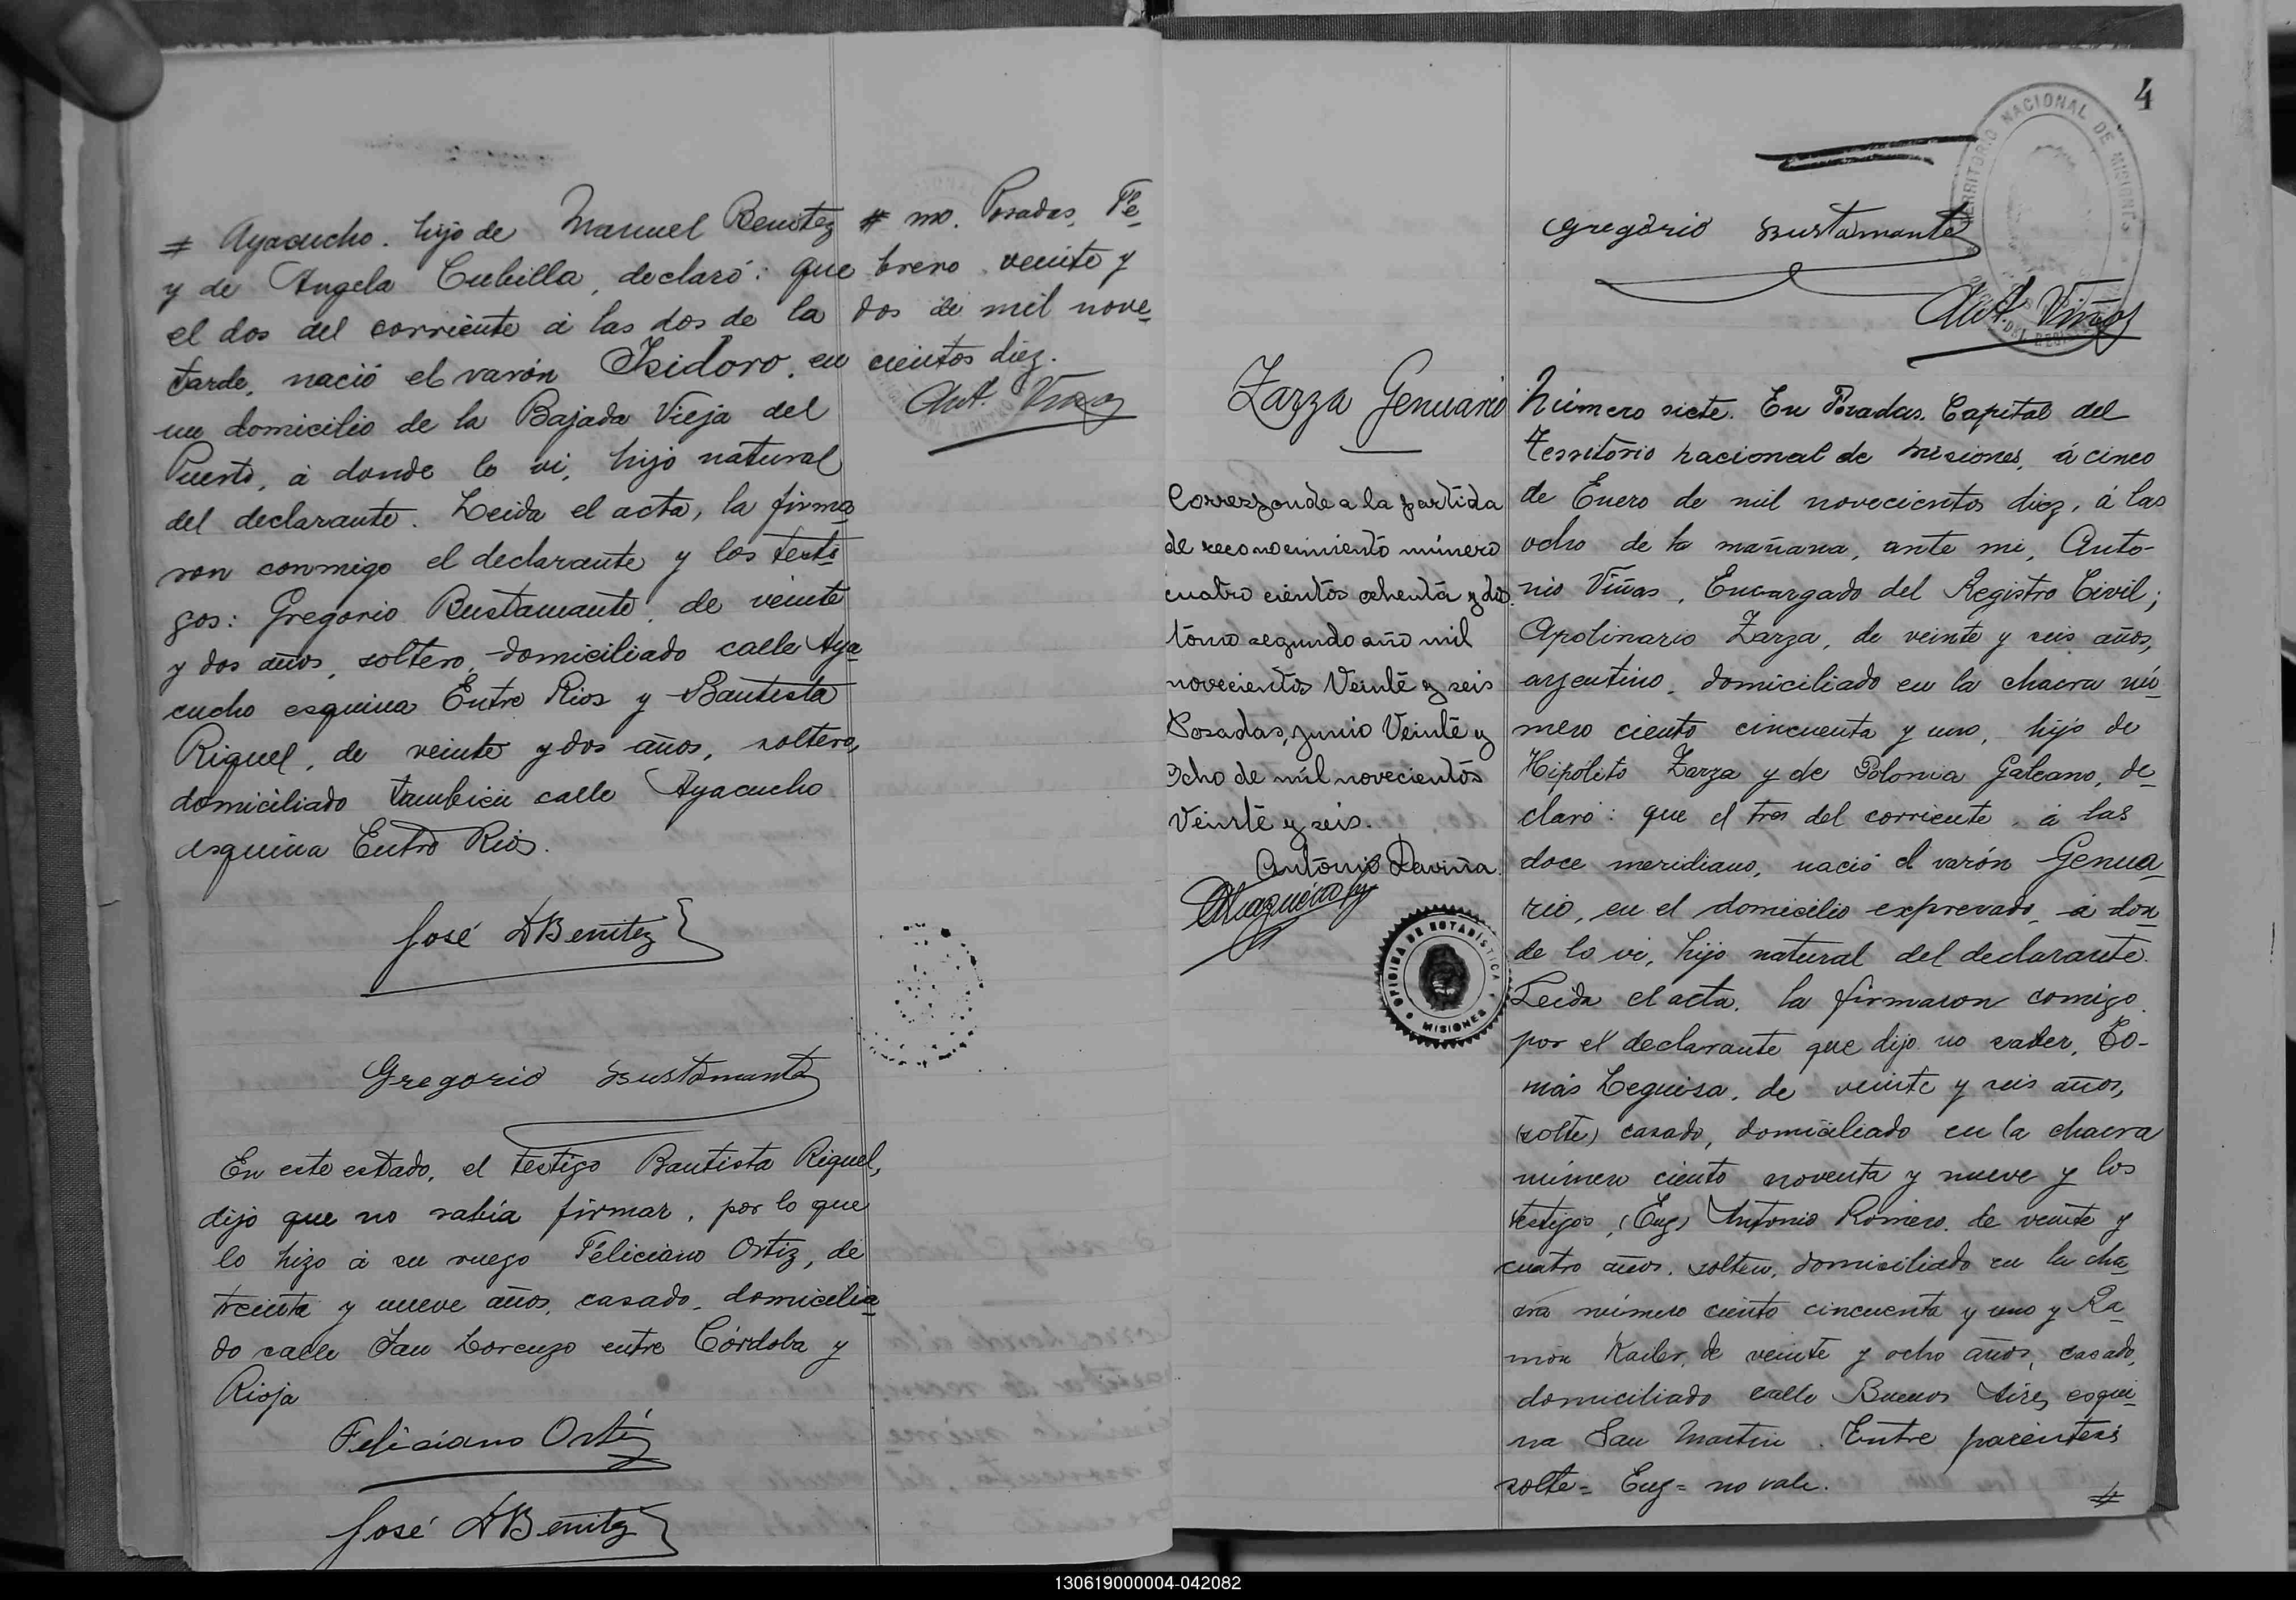 # Ayacucho. hijo de Manuel Benitez
y de Angela Cubilla, declaró: que
el dos del corriente á las dos de la
tarde, nació el varón Isidoro, en
su domicilio de la Bajada Vieja del
Puerto, á donde lo vi, hijo natural
del declarante. Leida el acta, la firma_
ron conmigo el declarante y los testi_
gos: Gregorio Bustamante, de veinte
y dos años, soltero, domiciliado calle Aya_
cucho esquina Entre Rios y Bautista
Riquel, de veinte y dos años, soltero,
domiciliado tambien calle Ayacucho
esquina Entre Rios.
José A Benitez
Gregorio Bustamante
En este estado, el testigo Bautista Riquel,
dijo que no sabía firmar, por lo que
lo hizo á su ruego Feliciano Ortiz, de
treinta y nueve años, casado, domicilia_
do calle San Lorenzo entre Córdoba y
Rioja
Feliciano Ortiz
José A Benitez
# mo. Posadas, Fe_
brero veinte y
dos de mil nove_
cientos diez.
Ant. Viñas
4
TERRITORIO NACIONAL DE MISIONES
Gregorio Bustamante
Ant. Viñas
Zarza Genuario
Corresponde a la partida
de reconocimiento número
cuatro cientos ochenta y dos
tomo segundo año mil
novecientos Veinte y seis
Posadas, junio Veinte y
ocho de mil novecientos
Veinte y seis.
Antonio Laviña.
OFICINA DE ESTADÍSTICA
MISIONES
Número siete. En Posadas, Capital del
Territorio nacional de Misiones, á cinco
de Enero de mil novecientos diez, á las
ocho de la mañana, ante mi, Anto-
nio Viñas, Encargado del Registro Civil;
Apolinario Zarza, de veinte y seis años,
argentino, domiciliado en la chacra nú_
mero ciento cincuenta y uno, hijo de
Hipólito Zarza y de Polonia Galeano, de_
claró: que el tres del corriente, á las
doce meridiano, nació el varón Genua_
rio, en el domicilio expresado, á don_
de lo vi, hijo natural del declarante.
Leida el acta, la firmaron comigo
por el declarante que dijo no saber, To-
más Leguisa, de veinte y seis años,
(solte) casado, domiciliado en la chacra
número ciento noventa y nueve y los
testigos, (Eug) Antonio Romero, de veinte y
cuatro años, soltero, domiciliado en la cha_
cra número ciento cincuenta y uno y Ra_
món Kailer, de veinte y ocho años, casado,
domiciliado calle Buenos Aires esqui_
na San Martin. Entre parentesis
solte= Eug= no vale.
#
130619000004-042082